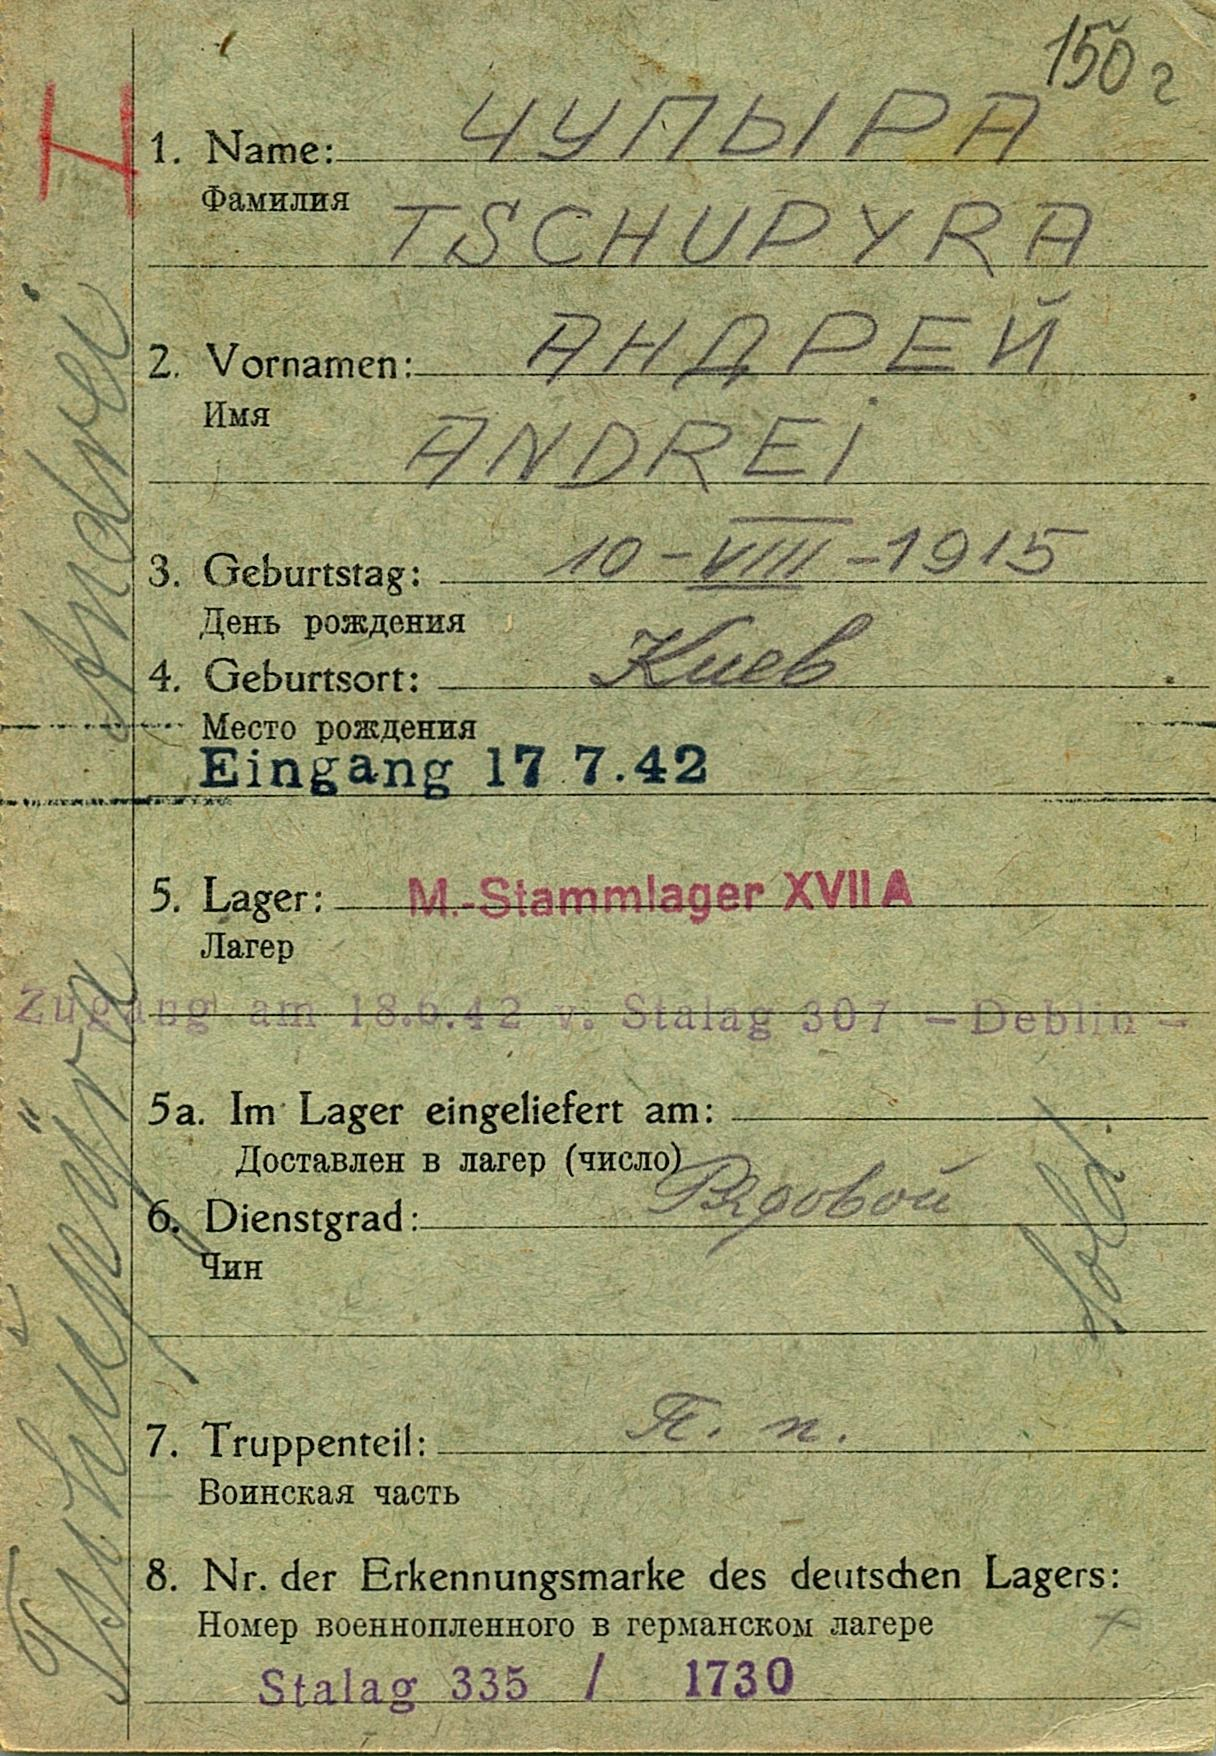 150 г
1. Name: ЧУПЫРА
Фамилия
TSCHUPYRA
2. Vornamen: АНДРЕЙ
Имя
ANDREI
3. Geburtstag: 10-VIII-1915
День рождения
4. Geburtsort: Киев
Место рождения
Eingang 17 7.42
5. Lager: M.-Stammlager XVII A
Лагер
Zugang am 18.6.42 v. Stalag 307 – Deblin –
5a. Im Lager eingeliefert am:
Доставлен в лагер (число)
6. Dienstgrad: Рядовой
Чин
Sold.
7. Truppenteil: П. п.
Воинская часть
8. Nr. der Erkennungsmarke des deutschen Lagers:
Номер военнопленного в германском лагере
Stalag 335 / 1730
Andrei